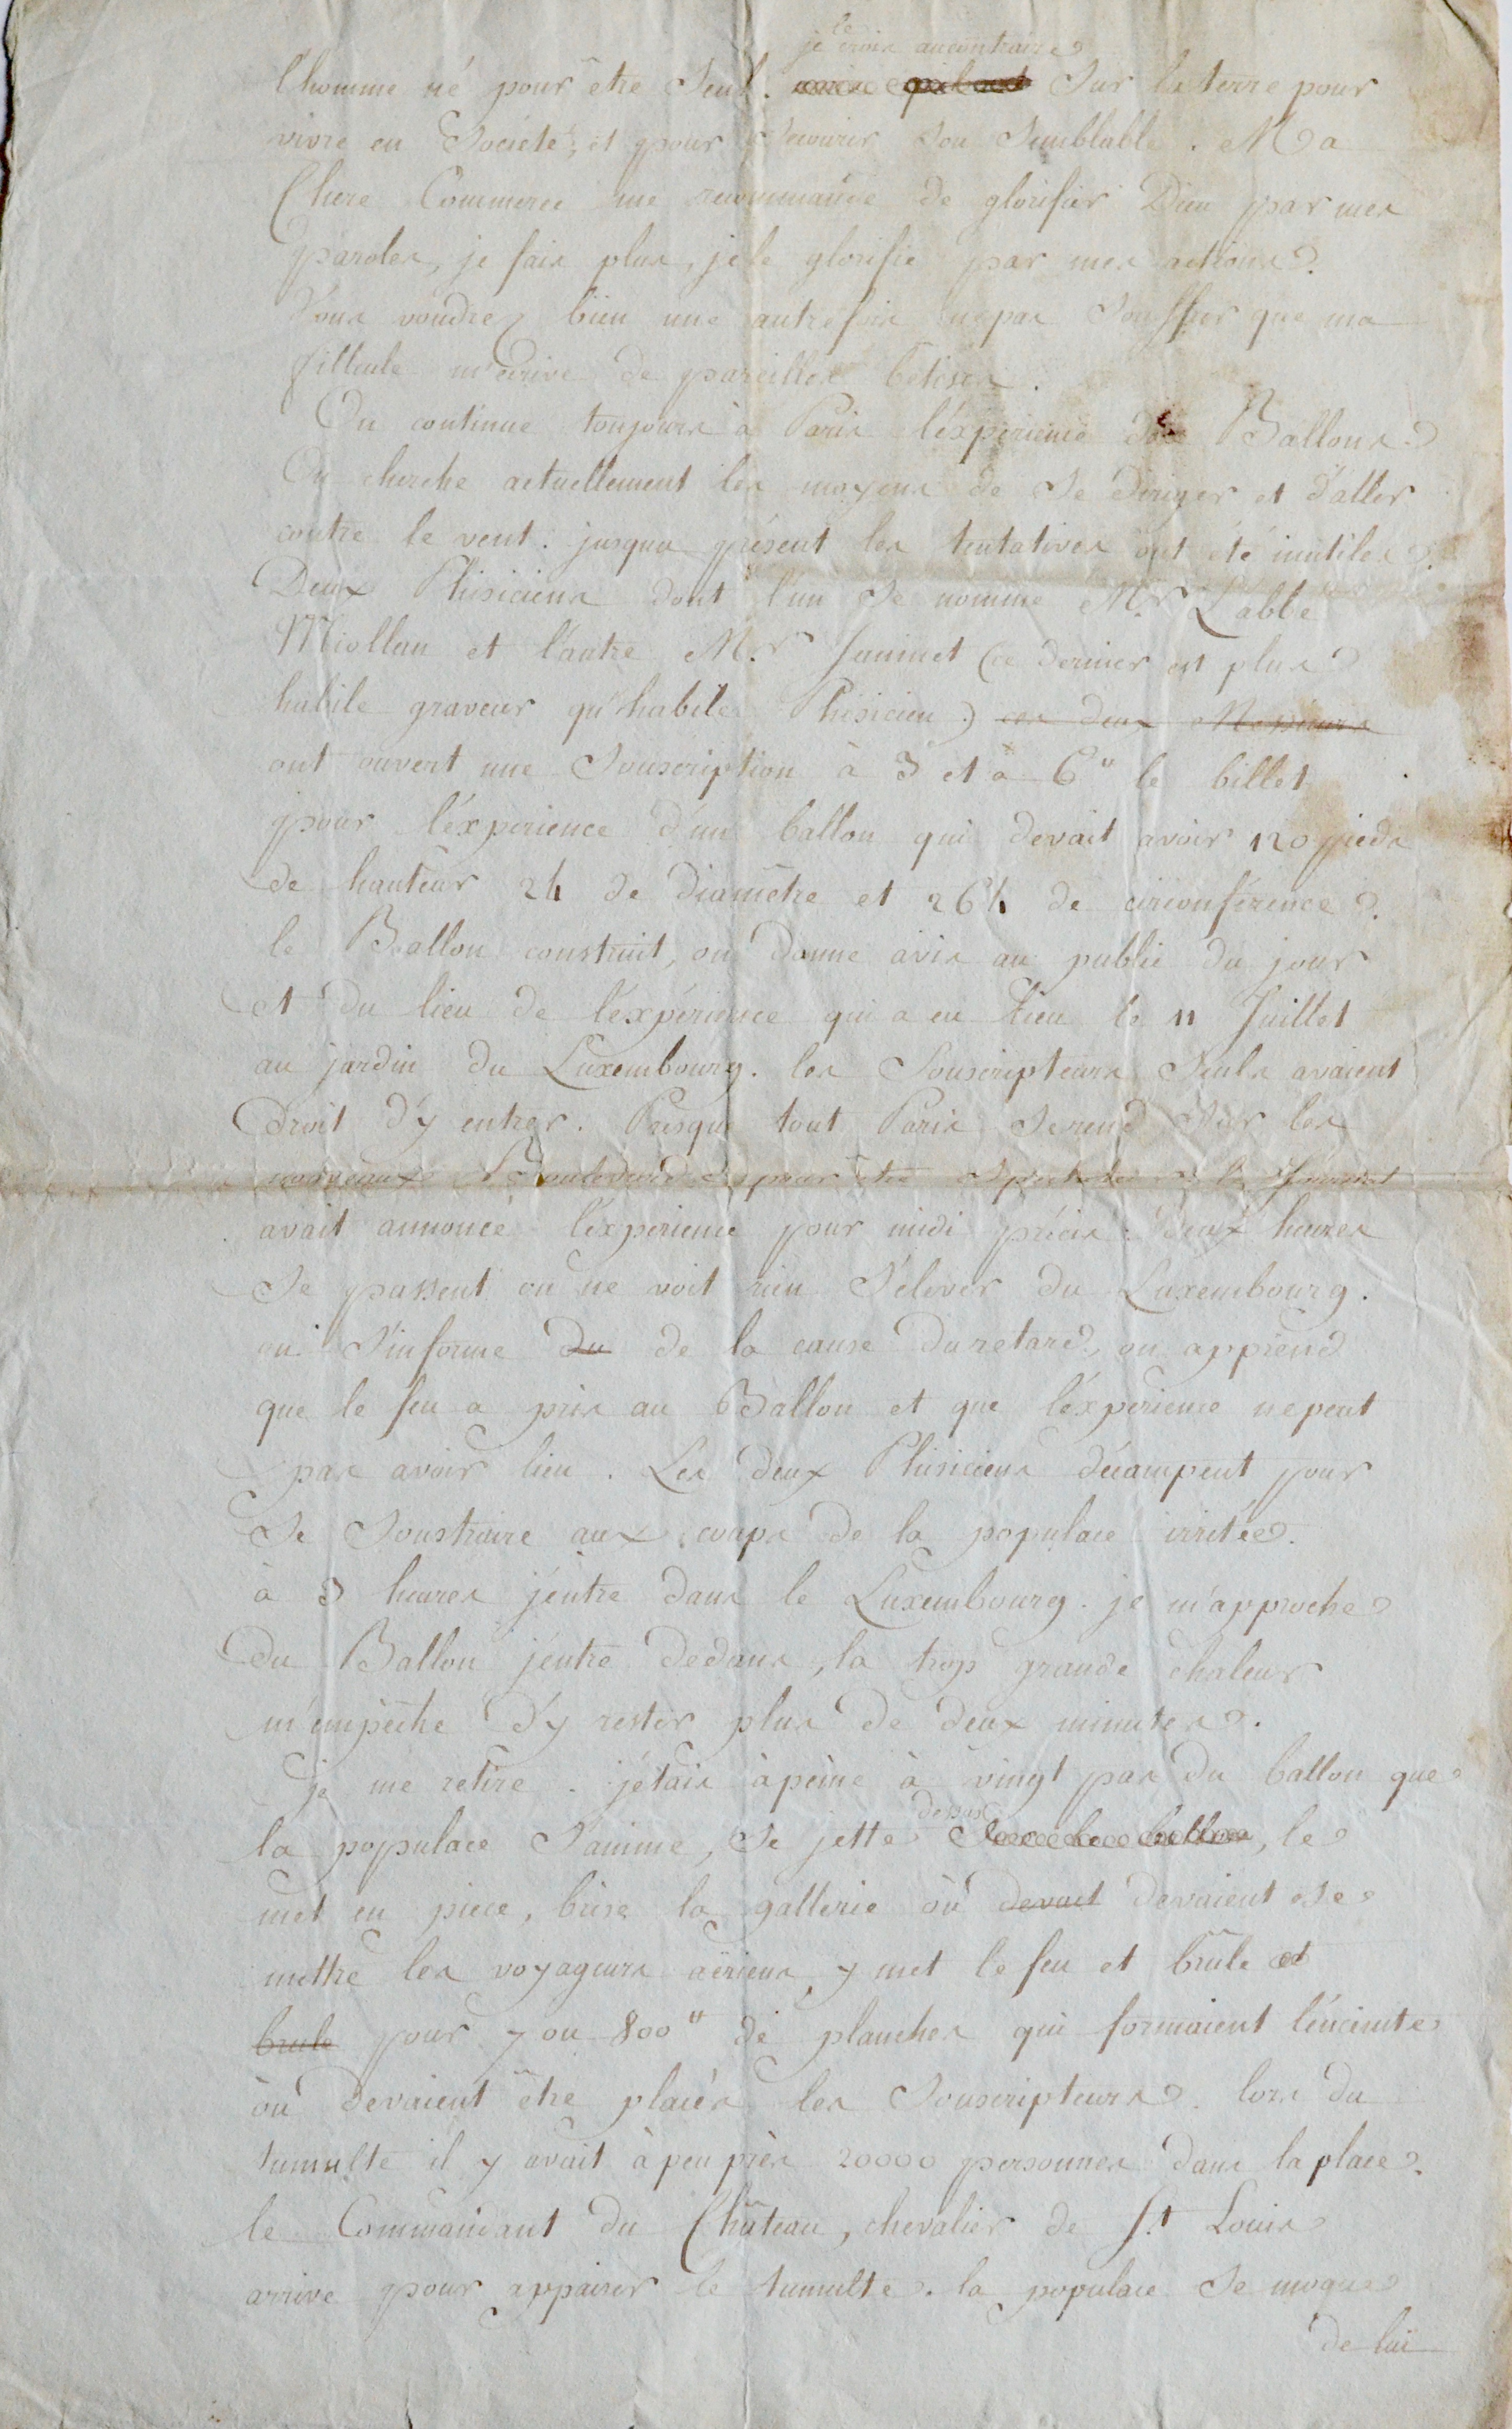 je le crois aucontraire
l'homme né pour être seul. sur la terre pour
vivre en Société, et pour secourir son semblable. Ma
Chere Commere me recommande de glorifier Dieu par mes
paroles, je fais plus, je le glorifie par mes actions.
Vous voudrez bien une autrefois nepas souffrir que ma
filleule m'ecrive de pareilles betises.
On continue toujours à Paris l'éxperience des Ballons.
On cherche actuellement les moyens de se diriger et d'aller
contre le vent. jusqua présent les tentatives ont été inutiles.
Deux Phisiciens dont l'un se nomme Mr. L'abbé
Miollan et l'autre Mr. Janinet (ce dernier est plus
habile graveur qu'habile Phisicien) ces deux Messieurs
ont ouvert une Souscription à 3 et à 6tt le billet
pour l'éxperience d'un ballon qui devait avoir 120 pieds
de hauteur 24 de diamêtre et 264 de circonférence.
le Ballon construit, on donne avis au public du jour
et du lieu de l'éxpérience qui a eu lieu le 11 Juillet
au jardin du Luxembourg. les Souscripteurs seuls avaient
droit d'y entrer. Presque tout Paris serend sur les
nouveaux Boulevards pour être
avait annoncé l'éxperience pour midi précis. deux heures
se passent on ne voit rien s'élever du Luxembourg.
on s'informe du de la cause du retard, on apprend
que le feu a pris au Ballon et que l'éxperience nepeut
pas avoir lieu. Les deux Phisiciens décampent pour
se soustraire aux coups de la populace irritée.
à 3 heures j'entre dans le Luxembourg. je m'approche
du Ballon j'entre dedans, la trop grande chaleur
m'empêche d'y rester plus de deux minutes.
je me retire. j'étais àpeine à vingt pas du ballon que
la populace s'anime, se jette dessus sur le ballon, le
met en piece, brise la gallerie où devait devaient se
mettre les voyageurs aëriens, y met le feu et brule et
brule pour 7 ou 800tt de planches qui formaient l'enceinte
où devaient être placés les Souscripteurs. lors du
tumulte il y avait àpeuprès 20000 personnes dans laplace.
le Commandant du Château, chevalier de St. Louis
arrive pour appaiser le tumulte. la populace se moque
de lui